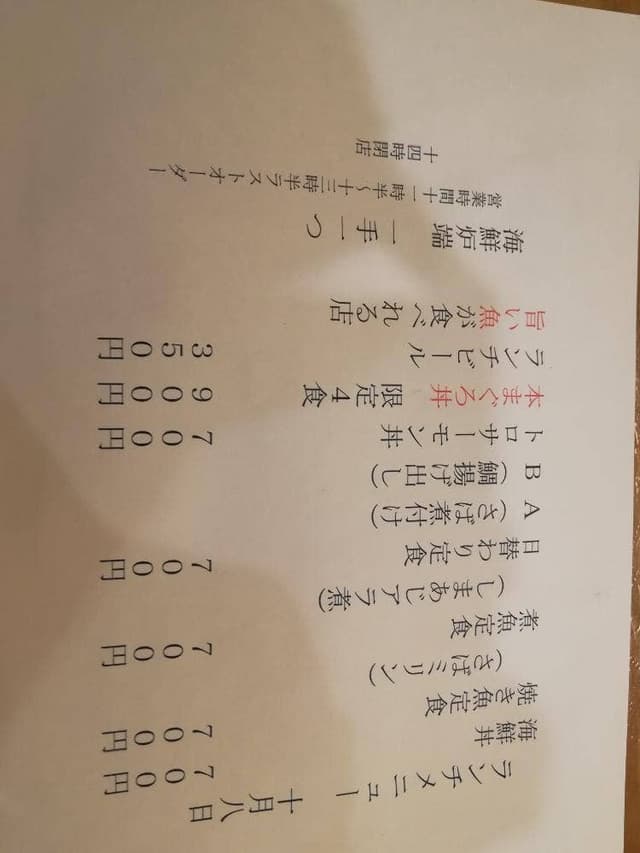 ランチメニュー 十月八日
海鮮丼 700円
焼き魚定食 700円
(さばミリン)
煮魚定食 700円
(しまあじアラ煮)
日替わり定食 700円
A (さば煮付け)
B (鯛揚げ出し)
トロサーモン丼 700円
本まぐろ丼 限定4食 900円
ランチビール 350円
旨い魚が食べれる店
海鮮炉端 一手一つ
営業時間十一時半～十三時半ラストオーダー
十四時閉店